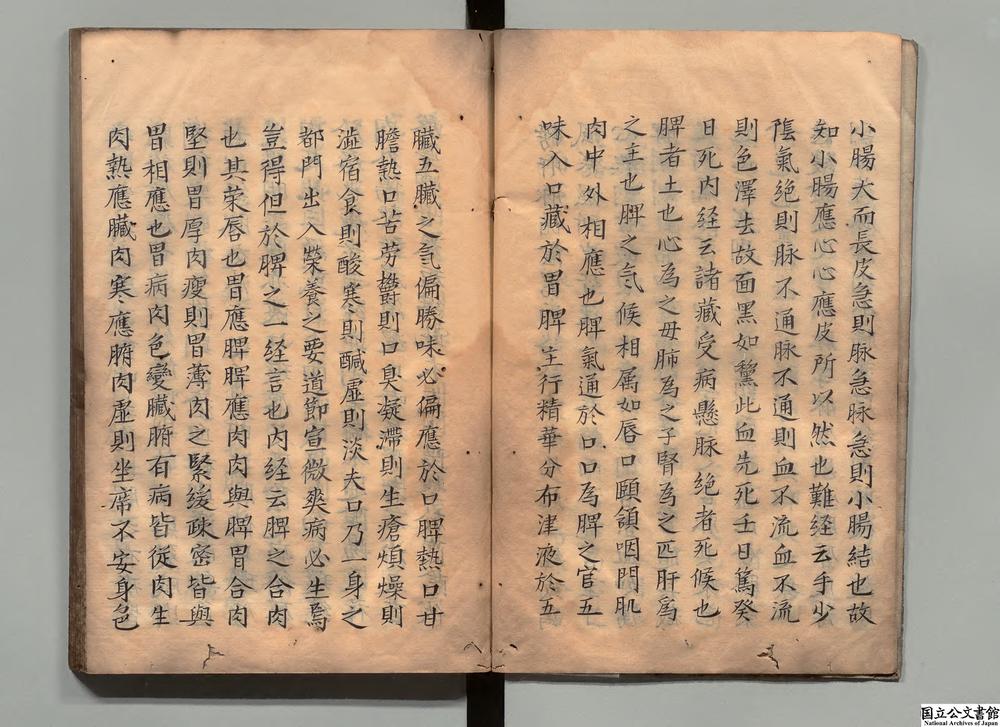 小腸大而長皮急則脉急脉急則小腸結也故
知小腸應心心應皮所以然也難経云手少
隂氣絶則脉不通脉不通則血不流血不流
則色澤去故面黑如黧此血先死壬日篤癸
日死内経云諸藏受病懸脉絶者死候也
脾者土也心為之母肺為之子腎為之匹肝爲
之主也脾之氣候相属如唇口頤頷咽門肌
肉中外相應也脾氣通於口口為脾之官五
味入口藏於胃脾主行精華分布津液於五
臓五臓之氣偏勝味必偏應於口脾熱口甘
膽熱口苦劳欝則口臭凝滯則生瘡煩燥則
澁宿食則酸寒則醎虚則淡夫口乃一身之
都門出入榮養之要道節宣微爽病必生焉
豈得但於脾之一経言也内経云脾之合肉
也其荣唇也胃應脾脾應肉肉與脾胃合肉
堅則胃厚肉瘦則胃薄肉之緊緩疎密皆與
胃相應也胃病肉色變臓腑有病皆従肉生
肉熱應臓肉寒應腑肉虚則坐席不安身色
国立公文書館
National Archives of Japan